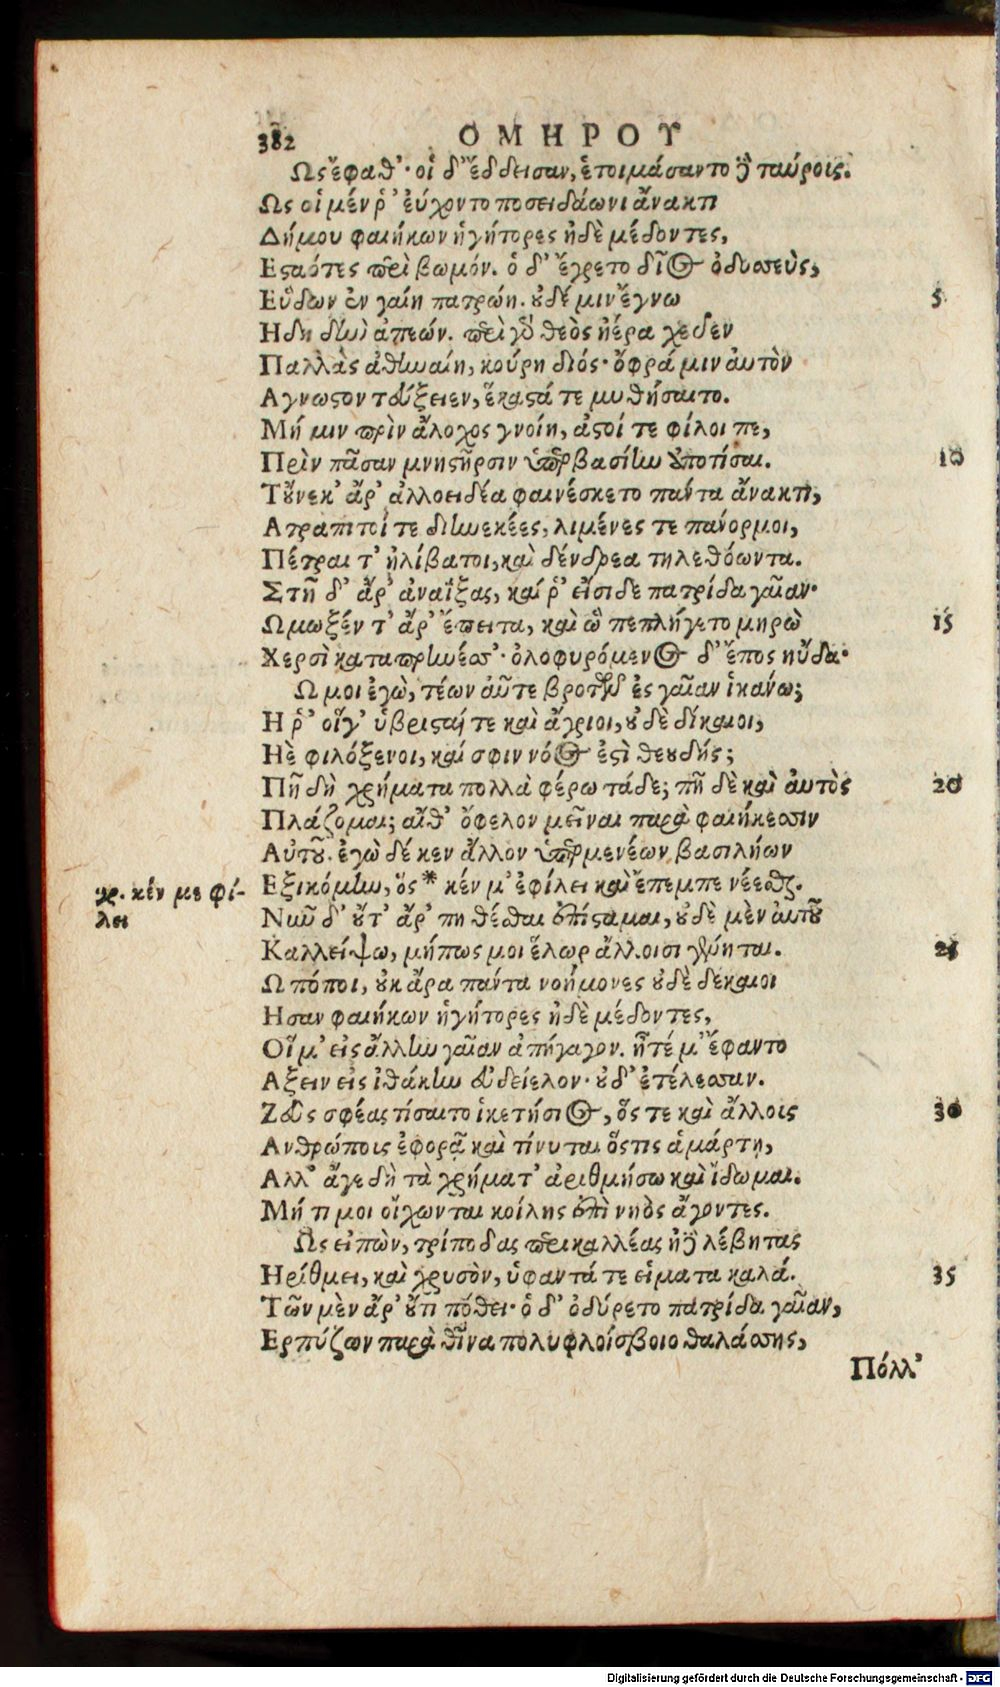 382 ΟΜΗΡΟΥ
Ως ἔφαθ'· οἱ δ' ἔδδεισαν, ἑτοιμάσαντο δὲ ταύροις.
Ως οἱ μέν ῥ' εὔχοντο ποσειδάωνι ἄνακτι
Δήμου φαιήκων ἡγήτορες ἠδὲ μέδοντες,
Εσαότες περὶ βωμόν. ὁ δ' ἔγρετο δῖος ὀδυσσεὺς,
Εὕδων ἐν γαίη πατρώη. οὐδέ μιν ἔγνω 5
Ηδη δὴν ἀπεών. περὶ γὰρ θεὸς ἠέρα χεδεν
Παλλὰς ἀθηναίη, κούρη διός· ὄφρά μιν ἀυτὸν
Αγνωστον τεύξειεν, ἕκαστά τε μυθήσαιτο.
Μή μιν πρὶν ἄλοχος γνοίη, ἀστοί τε φίλοι τε,
Πρὶν πᾶσαν μνηστῆρσιν ὑπερβασίην ἀποτίσαι. 10
Τοὔνεκ' ἄρ' ἀλλοειδέα φαινέσκετο πάντα ἄνακτι,
Ατραπιτοί τε διηνεκέες, λιμένες τε πάνορμοι,
Πέτραι τ' ἠλίβατοι, καὶ δένδρεα τηλεθόωντα.
Στῆ δ' ἄρ' ἀναΐξας, καί ῥ' εἴσιδε πατρίδα γαῖαν·
Ωμωξέν τ' ἄρ' ἔπειτα, καὶ ὣ πεπλήγετο μηρὼ 15
Χερσὶ καταπρηνέσσ'· ὀλοφυρόμενος δ' ἔπος ηὔδα·
Ω μοι ἐγὼ, τέων αὖτε βροτῶν ἐς γαῖαν ἱκάνω;
Η ῥ' οἵγ' ὑβρισταί τε καὶ ἄγριοι, οὐδὲ δίκαιοι,
Ηὲ φιλόξενοι, καί σφιν νόος ἐστὶ θεουδής;
Πῆ δὴ χρήματα πολλὰ φέρω τάδε; πῆ δὲ καὶ ἀυτὸς 20
Πλάζομαι; αἴθ' ὄφελον μεῖναι παρὰ φαιήκεσσιν
Αὐτοῦ. ἐγὼ δέ κεν ἄλλον ὑπερμενέων βασιλήων
γρ. κέν με φί-
λει
Εξικόμην, ὅς * κέν μ' ἐφίλει καὶ ἔπεμπε νέεσθαι.
Νῦν δ' οὔτ' ἄρ' πη θέσθαι ἐπίσταμαι, οὐδὲ μὲν ἀυτοῦ
Καλλείψω, μήπως μοι ἕλωρ ἄλλοισι γένηται. 25
Ω πόποι, οὐκ ἄρα πάντα νοήμονες οὐδὲ δεκαιοι
Ησαν φαιήκων ἡγήτορες ἠδὲ μέδοντες,
Οἵ μ' εἰς ἄλλην γαῖαν ἀπήγαγον. ἦτέ μ' ἔφαντο
Αξειν εἰς ἰθάκην εὐδείελον· οὐδ' ἐτέλεσσαν.
Ζεὺς σφέας τίσαιτο ἱκετήσιος, ὅς τε καὶ ἄλλοις 30
Ανθρώποις ἐφορᾷ καὶ τίνυται ὅστις ἁμάρτη,
Αλλ' ἄγε δὴ τὰ χρήματ' ἀριθμήσω καὶ ἴδωμαι.
Μή τι μοι οἴχωνται κοίλης ἐπὶ νηὸς ἄγοντες.
Ως εἰπὼν, τρίποδας περικαλλέας ἠδὲ λέβητας
Ηρίθμει, καὶ χρυσὸν, ὑφαντά τε εἵματα καλά. 35
Τῶν μὲν ἄρ' οὔτι πόθει· ὁ δ' ὀδύρετο πατρίδα γαῖαν,
Ερπύζων παρὰ θῖνα πολυφλοίσβοιο θαλάσσης,
Πόλλ'
Digitalisierung gefördert durch die Deutsche Forschungsgemeinschaft - DFG